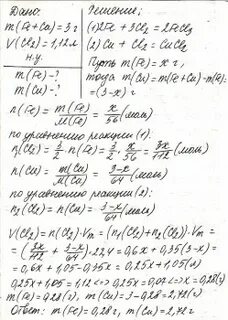 Дано:
m(Fe+Cu)=3г
V(Cl2)=1,12л
н.у.
m(Fe)-?
m(Cu)-?
Решение:
(1) 2Fe + 3Cl2 = 2FeCl3
(2) Cu + Cl2 = CuCl2
Пусть m(Fe)=x г,
тогда m(Cu)=m(Fe+Cu)-m(Fe)=
=(3-x) г
n(Fe) = m(Fe)/M(Fe) = x/56 (моль)
по уравнению реакции (1):
n1(Cl2) = 3/2 n(Fe) = 3/2 · x/56 = 3x/112 (моль)
n(Cu) = m(Cu)/M(Cu) = 3-x/64 (моль)
по уравнению реакции (2):
n2(Cl2) = n(Cu) = 3-x/64 (моль)
V(Cl2) = n(Cl2)·Vm = (n1(Cl2)+n2(Cl2))·Vm =
= (3x/112 + 3-x/64)·22,4 = 0,6x + 0,35(3-x) =
= 0,6x + 1,05 - 0,35x = 0,25x + 1,05 (л)
0,25x + 1,05 = 1,12 <=> 0,25x = 0,07 <=> x = 0,28(г)
m(Fe) = 0,28г, m(Cu) = 3 - 0,28 = 2,72(г)
Ответ: m(Fe) = 0,28г, m(Cu) = 2,72г